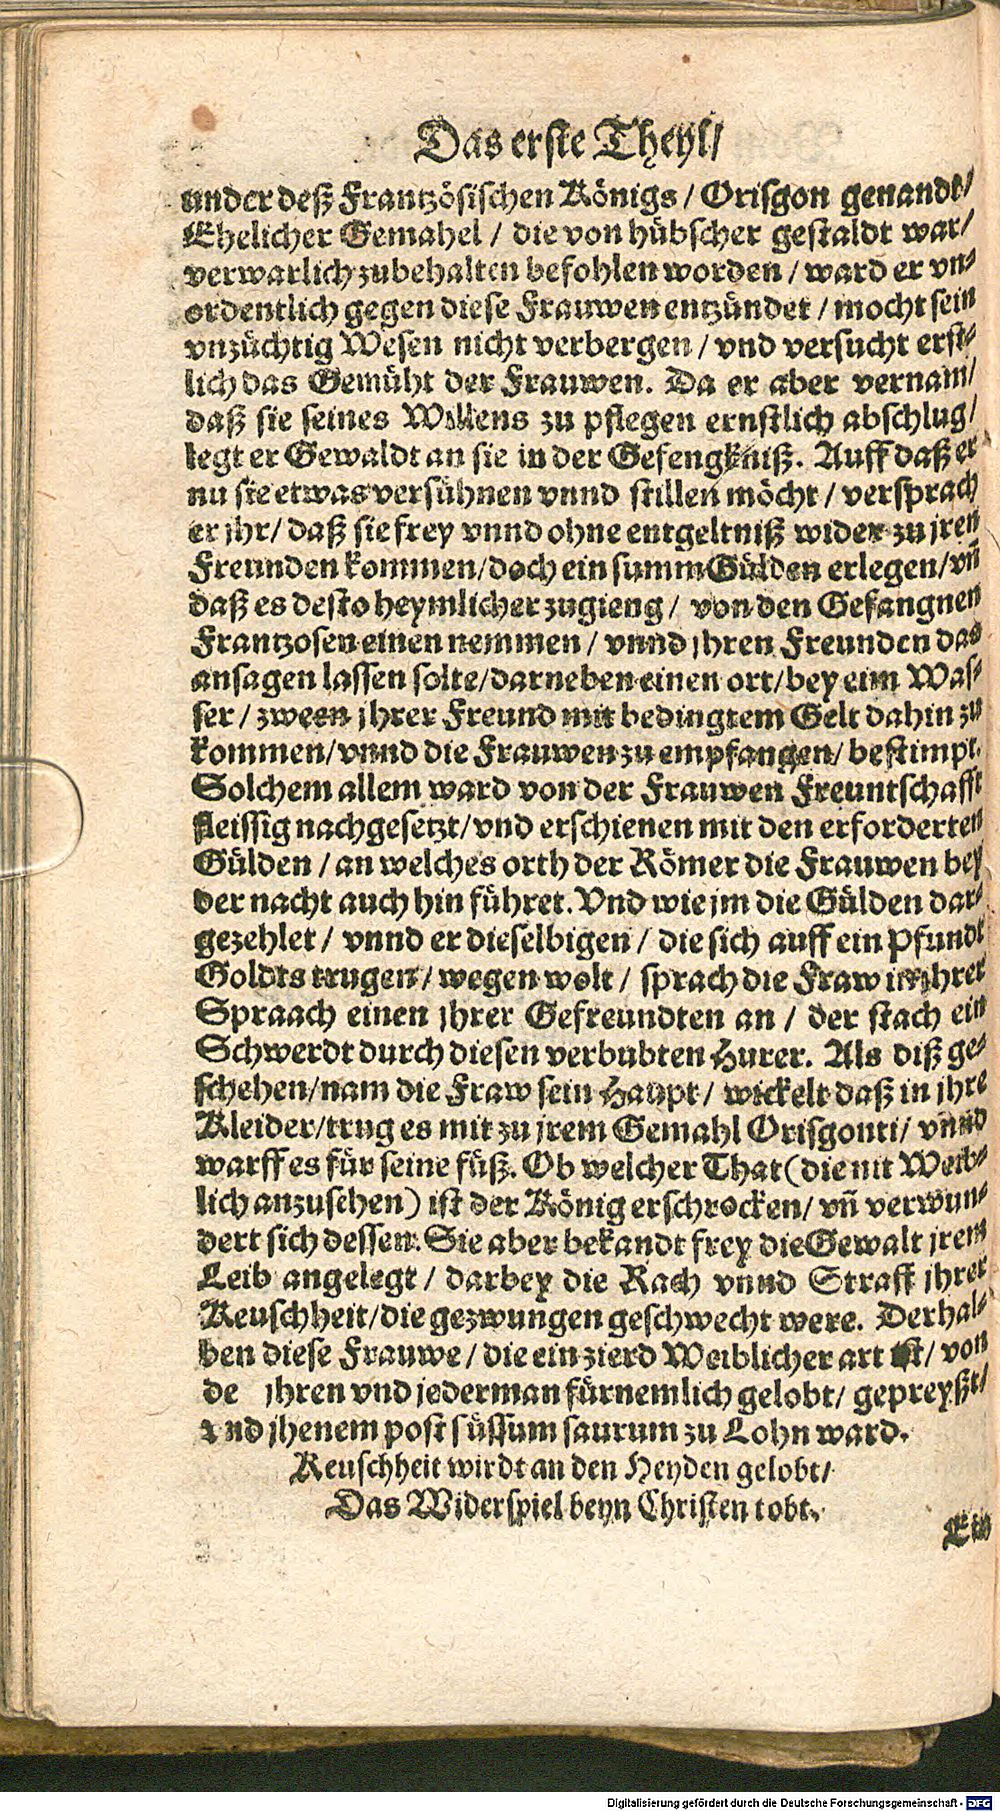 Das erste Theyl/
under deß Frantzösischen Königs / Orisgon genandt/
Ehelicher Gemahel / die von hübscher gestaldt war/
verwarlich zubehalten befohlen worden / ward er vn⸗
ordentlich gegen diese Frauwen entzündet / mocht sein
vnzüchtig Wesen nicht verbergen / vnd versucht erst⸗
lich das Gemüht der Frauwen. Da er aber vernam/
daß sie seines Willens zu pflegen ernstlich abschlug/
legt er Gewaldt an sie in der Gefengkniß. Auff daß er
nu sie etwas versühnen vnnd stillen möcht / versprach
er jhr/ daß sie frey vnnd ohne entgeltniß wider zu jren
Freunden kommen/doch ein summ Gülden erlegen/vñ
daß es desto heymlicher zugieng / von den Gefangnen
Frantzosen einen nemmen / vnnd jhren Freunden das
ansagen lassen solte/darneben einen ort/bey eim Was⸗
ser / zween jhrer Freund mit bedingtem Gelt dahin zu
kommen/vnnd die Frauwen zu empfangen/ bestimpt.
Solchem allem ward von der Frauwen Freuntschafft
fleissig nachgesetzt/vnd erschienen mit den erforderten
Gülden / an welches orth der Römer die Frauwen bey
der nacht auch hin führet. Vnd wie jm die Gülden dar⸗
gezehlet / vnnd er dieselbigen / die sich auff ein Pfundt
Goldts trugen / wegen wolt / sprach die Fraw in jhrer
Spraach einen jhrer Gefreundten an / der stach ein
Schwerdt durch diesen verbubten Hurer. Als diß ge⸗
schehen/nam die Fraw sein Haupt/ wickelt daß in jhre
Kleider/trug es mit zu jrem Gemahl Orisgonti/ vnnd
warff es für seine füß. Ob welcher That (die nit Weib⸗
lich anzusehen) ist der König erschrocken/ vñ verwun⸗
dert sich dessen. Sie aber bekandt frey die Gewalt jrem
Leib angelegt / darbey die Rach vnnd Straff jhrer
Keuschheit/die gezwungen geschwecht were. Derhal⸗
ben diese Frauwe / die ein zierd Weiblicher art ist/ von
de jhren vnd jederman fürnemlich gelobt/ gepreyßt/
vnd jhenem post süssum saurum zu Lohn ward.
Keuschheit wirdt an den Heyden gelobt/
Das Widerspiel beyn Christen tobt.
Ein
Digitalisierung gefördert durch die Deutsche Forschungsgemeinschaft - DFG